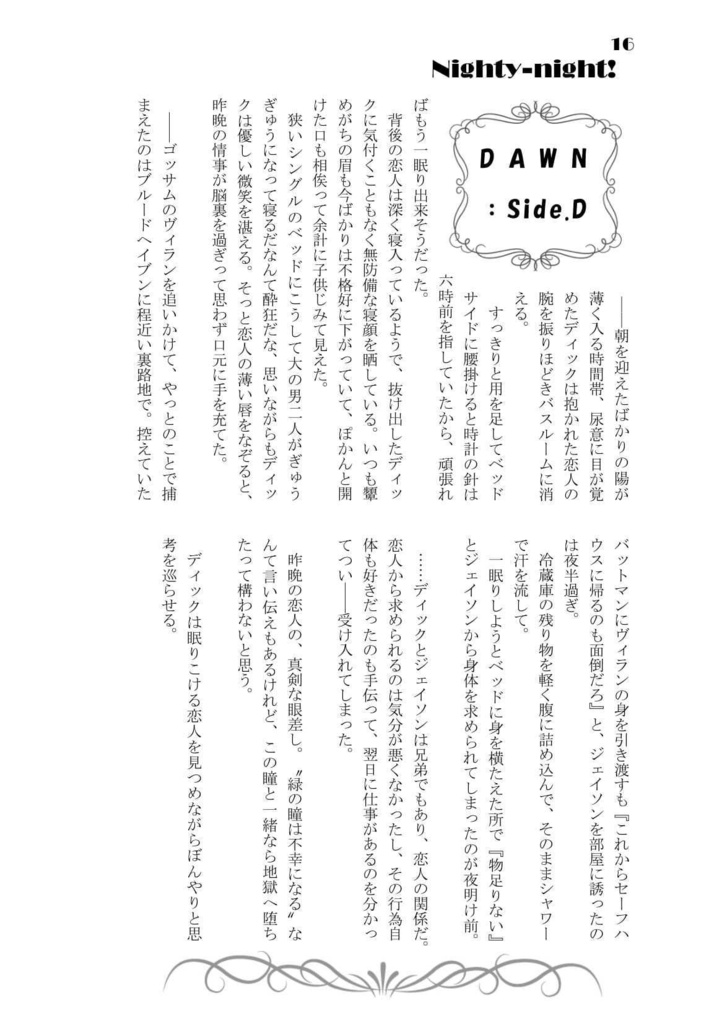 16
Nighty-night!
DAWN
: Side.D
――朝を迎えたばかりの陽が
薄く入る時間帯、尿意に目が覚
めたディックは抱かれた恋人の
腕を振りほどきバスルームに消
える。
すっきりと用を足してベッド
サイドに腰掛けると時計の針は
六時前を指していたから、頑張れ
ばもう一眠り出来そうだった。
背後の恋人は深く寝入っているようで、抜け出したディッ
クに気付くこともなく無防備な寝顔を晒している。いつも顰
めがちの眉も今ばかりは不格好に下がっていて、ぽかんと開
けた口も相俟って余計に子供じみて見えた。
狭いシングルのベッドにこうして大の男二人がぎゅう
ぎゅうになって寝るだなんて酔狂だな、思いながらもディッ
クは優しい微笑を湛える。そっと恋人の薄い唇をなぞると、
昨晩の情事が脳裏を過ぎって思わず口元に手を充てた。
――ゴッサムのヴィランを追いかけて、やっとのことで捕
まえたのはブルードヘイブンに程近い裏路地で。控えていた
バットマンにヴィランの身を引き渡すも『これからセーフハ
ウスに帰るのも面倒だろ』と、ジェイソンを部屋に誘ったの
は夜半過ぎ。
冷蔵庫の残り物を軽く腹に詰め込んで、そのままシャワー
で汗を流して。
一眠りしようとベッドに身を横たえた所で『物足りない』
とジェイソンから身体を求められてしまったのが夜明け前。
……ディックとジェイソンは兄弟でもあり、恋人の関係だ。
恋人から求められるのは気分が悪くなかったし、その行為自
体も好きだったのも手伝って、翌日に仕事があるのを分かっ
てつい――受け入れてしまった。
昨晩の恋人の、真剣な眼差し。〝緑の瞳は不幸になる〟な
んて言い伝えもあるけれど、この瞳と一緒なら地獄へ堕ち
たって構わないと思う。
ディックは眠りこける恋人を見つめながらぼんやりと思
考を巡らせる。